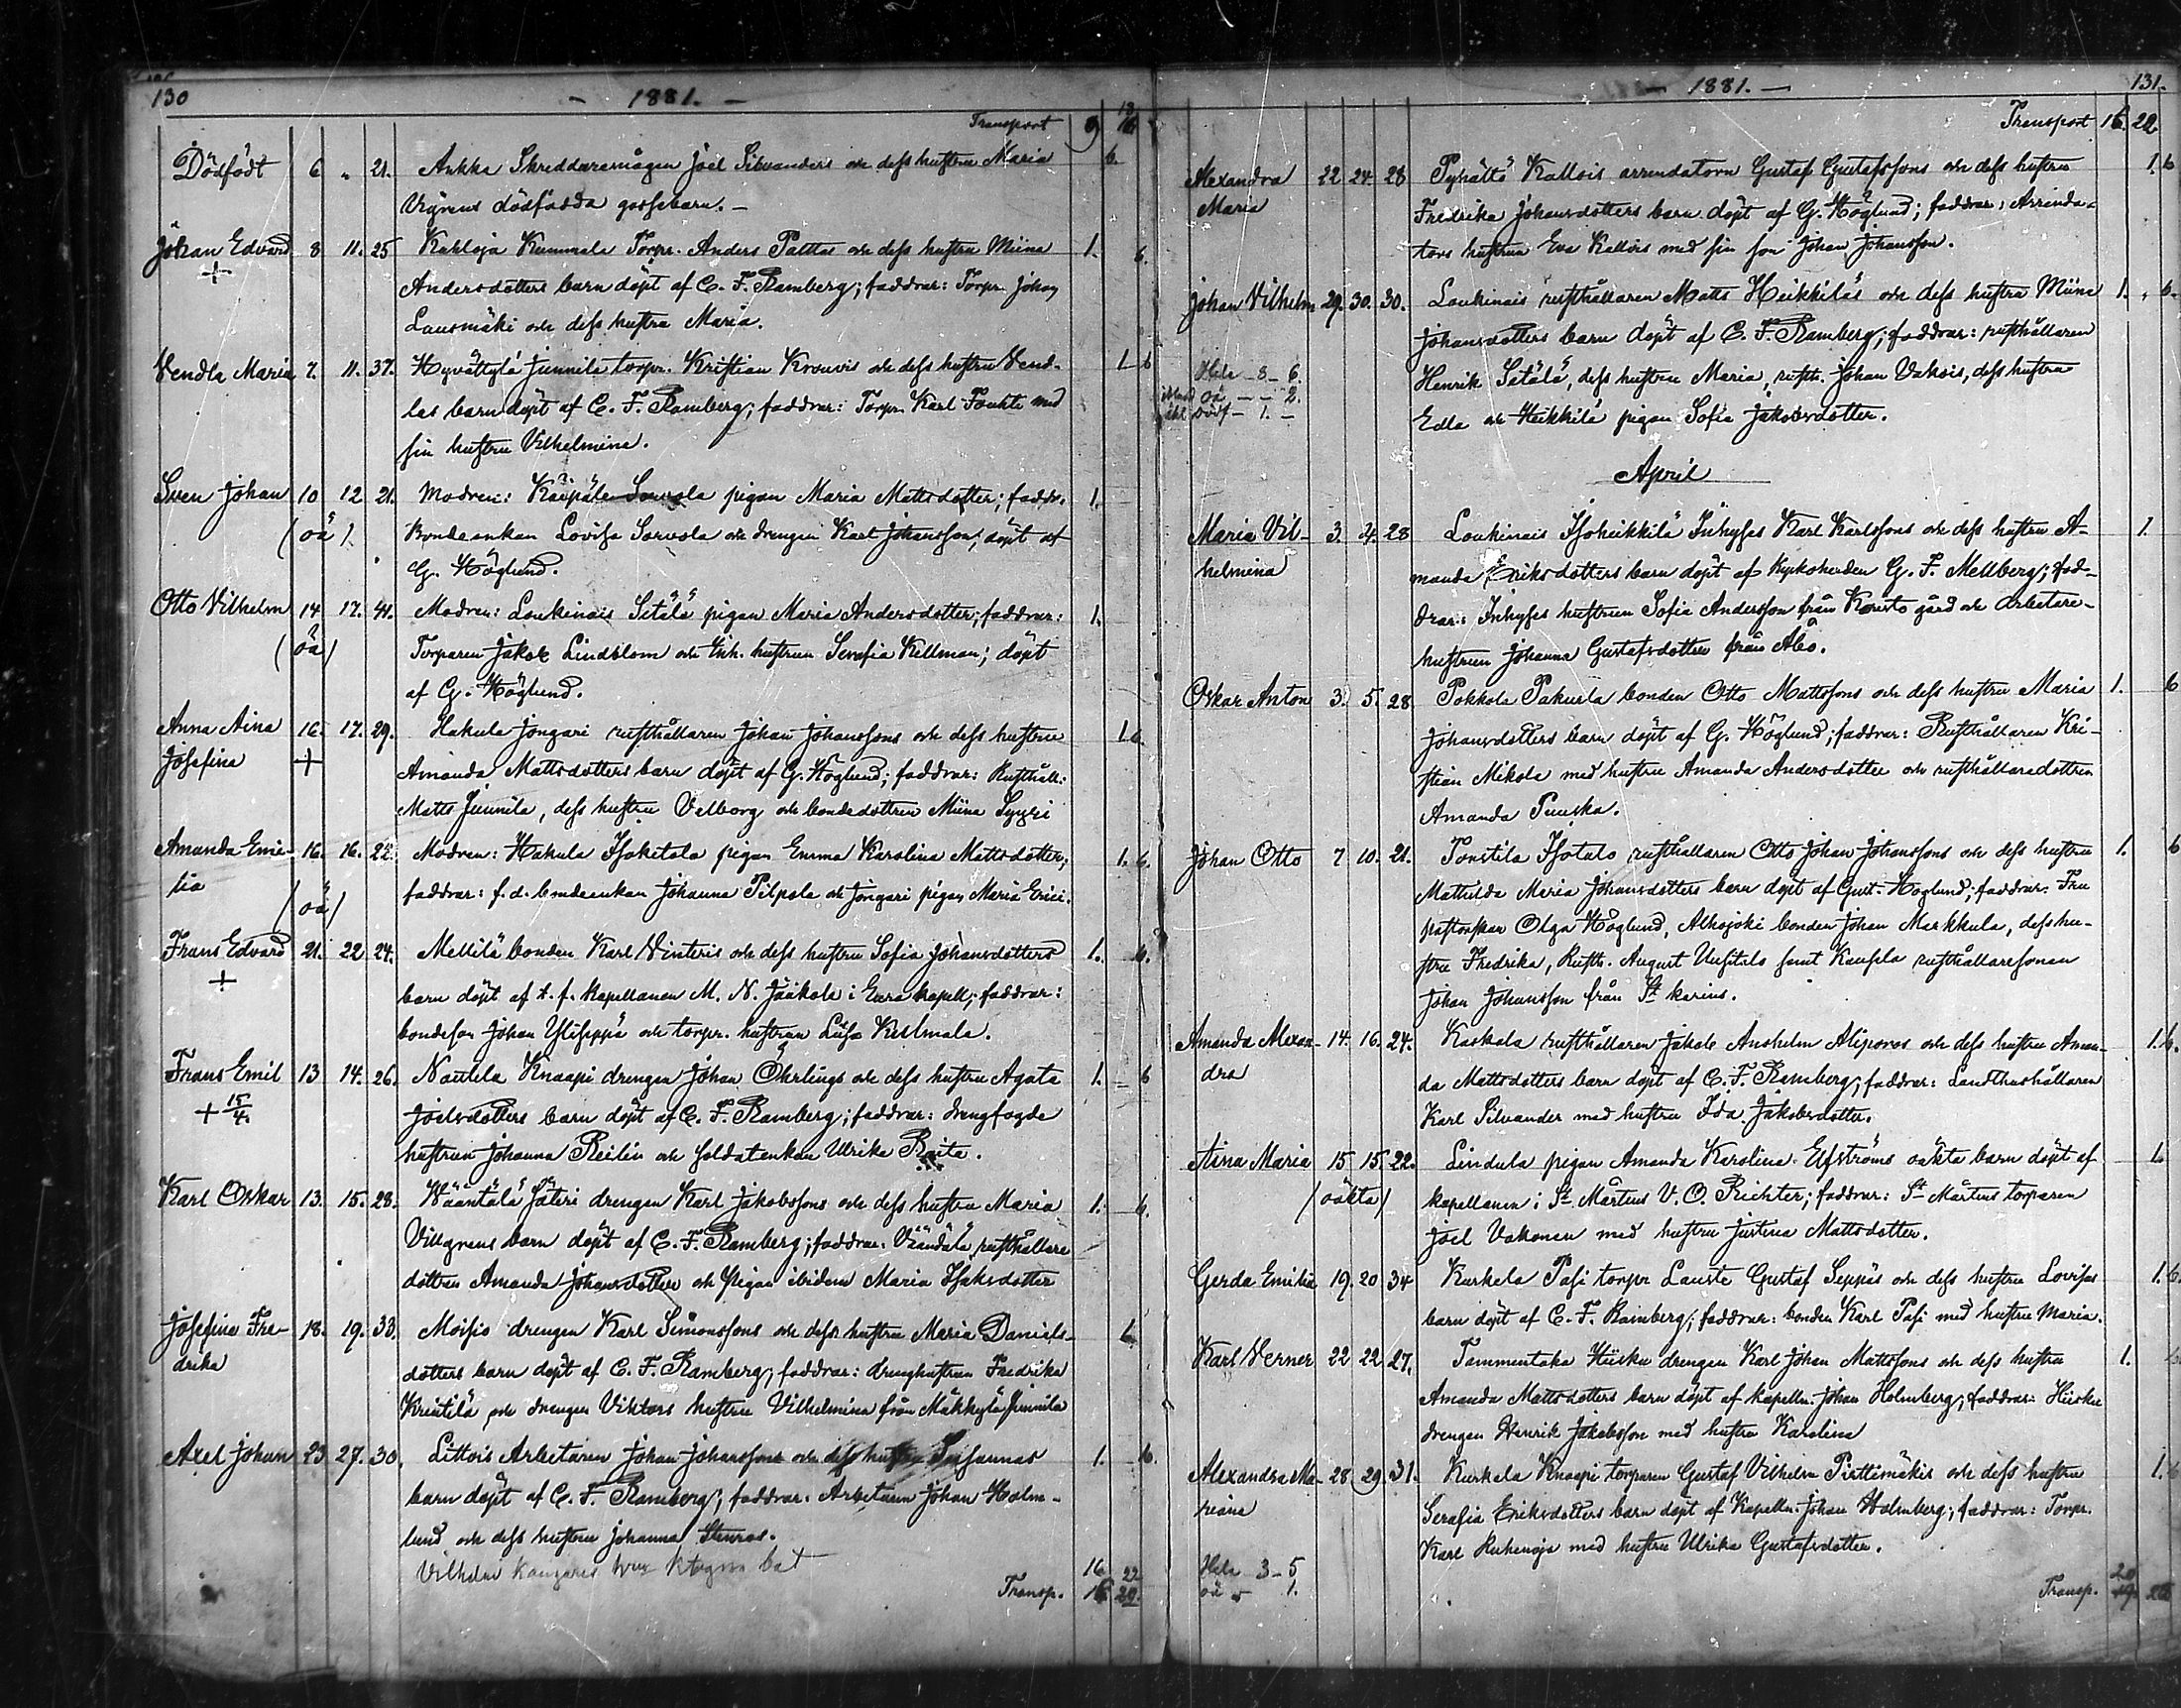 130
- 1881. -
Transport 9
Dödfödt 6 " 21. Aukka Skreddaremågen Joel Silvanders och dess hustru Maria 6
Vigrens dödfödda gossebarn. -
Johan Edvard 8 11. 25 Kahloja Kummala Torpr. Anders Palttas och dess hustru Miina 1. 6.
+ Andersdotters barn döpt af C. F. Ramberg; faddrar: Torpr. Johan
Lausmäki och dess hustru Maria.
Vendla Maria 7. 11. 37. Hyvättylä Junnila torpr. Kristian Krouvis och dess hustru Vend- 1 6
las barn döpt af C. F. Ramberg; faddrar: Torpr. Karl Touhti med
sin hustru Vilhelmina.
Sven Johan 10 12 21. Modren: Sorvola pigan Maria Mattsdotter; faddr. 1.
(oä). Bondeenkan Lovisa Sorvola och drengen Karl Johansson; döpt af
G. Höglund.
Otto Vilhelm 14 17. 41. Modren: Loukinais Setälä pigan Maria Andersdotter; faddrar: 1.
(oä) Torparen Jakob Lindblom och Inh. hustrun Serafia Kellman; döpt
af G. Höglund.
Anna Aina 16. 17. 29. Hakula Jongari rusthållaren Johan Johanssons och dess hustru 1. 6.
Josefina + Amanda Mattsdotters barn döpt af G. Höglund; faddrar: Rusthåll:
Matts Junnila, dess hustru Velborg och bondedottren Miina Syyri
Amanda Emi- 16. 16. 22. Modren: Hakula Isokitola pigan Emma Karolina Mattsdotter; 1. 6.
lia (oä) faddrar: f. d. bondeenkan Johanna Pilpola och Jongari pigan Maria Erici.
Frans Edvard 21. 22 24. Mellilä bonden Karl Vinteris och dess hustru Sofia Johansdotters 1. 6.
+ barn döpt af t. f. kapellanen M. N. Jääkola i Eura kapell; faddrar:
bondeson Johan Yliseppä och torpr. hustrun Lüsa Kestmala.
Frans Emil 13 14. 26. Nautela Knaapi drengen Johan Öhrlings och dess hustru Agata 1. 6
+ 15/4. Joelsdotters barn döpt af C. F. Ramberg; faddrar: drengfogde
hustrun Johanna Reilin och soldatenkan Ulrika Raita.
Karl Oskar 13. 15. 28. Wääntälä Säteri drengen Karl Jakobssons och dess hustru Maria 1. 6.
Villgrens barn döpt af C. F. Ramberg; faddrar: Vääntälä rusthållare
dottren Amanda Johansdotter och pigan ibidem Maria Isaksdotter
Josefina Fre- 18. 19. 33. Moisio drengen Karl Simonssons och dess hustru Maria Daniels- 6
drika dotters barn döpt af C. F. Ramberg; faddrar: drenghustrun Fredrika
Krintilä och drengen Viktors hustru Vilhelmina från Mäkkylä Junnila
Axel Johan 23 27. 30. Littois Arbetaren Johan Johanssons och dess hustru Susannas 1. 6.
barn döpt af C. F. Ramberg; faddrar: Arbetaren Johan Holm-
lund och dess hustru Johanna Stenros.
Vilhelm
16 22
Transp. 16 20.
- 1881. - 131.
Transport 16. 22
Alexandra 22 24. 28 Pyhältö Kallois arrendatorn Gustaf Gustafssons och dess hustru 1. 6
Maria Fredrika Johansdotters barn döpt af G. Höglund; faddrar: Arrenda-
tors hustrun Eva Kallois med sin son Johan Johansson.
Johan Vilhelm 29. 30. 30. Loukinais rusthållaren Matts Heikkiläs och dess hustru Miina 1. 6.
Johansdotters barn döpt af C. F. Ramberg; faddrar: rusthållaren
Hela 8 - 6. Henrik Setälä, dess hustru Maria, rusth. Johan Vahois, dess hustru
oä - - 2.
dödf - 1. - Edla och Heikkilä pigan Sofia Jakobsdotter.
April
Maria Vil- 3. 4. 28 Loukinais Isoheikkilä Inhyses Karl Karlssons och dess hustru A- 1.
helmina manda Eriksdotters barn döpt af Kyrkoherden G. F. Mellberg; fad-
drar: Inhyses hustrun Sofia Andersson från Koristo gård och arbetare-
hustrun Johanna Gustafsdotter från Åbo.
Oskar Anton 3. 5. 28 Pokkola Pakurla bonden Otto Mattssons och dess hustru Maria 1. 6
Johansdotters barn döpt af G. Höglund; faddrar: Rusthållaren Kri-
stian Mikola med hustru Amanda Andersdotter och rusthållaredottren
Amanda Puuska.
Johan Otto 7 10. 21. Tonttila Isotalo rusthållaren Otto Johan Johanssons och dess hustru 1. 6
Mathilda Maria Johansdotters barn döpt af Gust. Höglund; faddrar: Fru
pastorskan Olga Höglund, Alhojoki bonden Johan Markkula, dess hu-
stru Fredrika, Rusth. August Uusitalo samt Kausela rusthållaresonen
Johan Johansson från St karins.
Amanda Alexan- 14. 16. 24. Kaskala rusthållaren Jakob Anshelm Aliporas och dess hustru Aman- 1. 6.
dra da Mattsdotters barn döpt af C. F. Ramberg; faddrar: Landthushållaren
Karl Silvander med hustru Ida Jakobsdotter.
Aina Maria 15 15. 22. Lindula pigan Amanda Karolina Elfströms oäkta barn döpt af 1.
(oäkta) kapellanen i St Mårtens V. O. Richter; faddrar: St Mårtens torparen
Joel Vakonen med hustru Justina Mattsdotter.
Gerda Emilia 19. 20 34 Kurkela Pasi torpr Lauste Gustaf Seppäs och dess hustru Lovisas 1. 6.
barn döpt af C. F. Ramberg; faddrar: bonden Karl Pasi med hustru Maria.
Karl Verner 22 22 27. Tammentaka Hiisku drengen Karl Johan Mattssons och dess hustru 1.
Amanda Mattsdotters barn döpt af kapelln. Johan Holmberg; faddrar: Hiisku
drengen Henrik Jakobsson med hustru Karolina
Alexandra Ma- 28 29. 31. Kurkela Knaapi torparen Gustaf Vilhelm Pirttimäkis och dess hustru 1.
riana Serafia Eriksdotters barn döpt af Kapelln. Johan Holmberg; faddrar: Torpr.
Karl Ruhenoja med hustru Ulrika Gustafsdotter.
Hela 3 - 5
oä - 1.
20
Transp. 19.